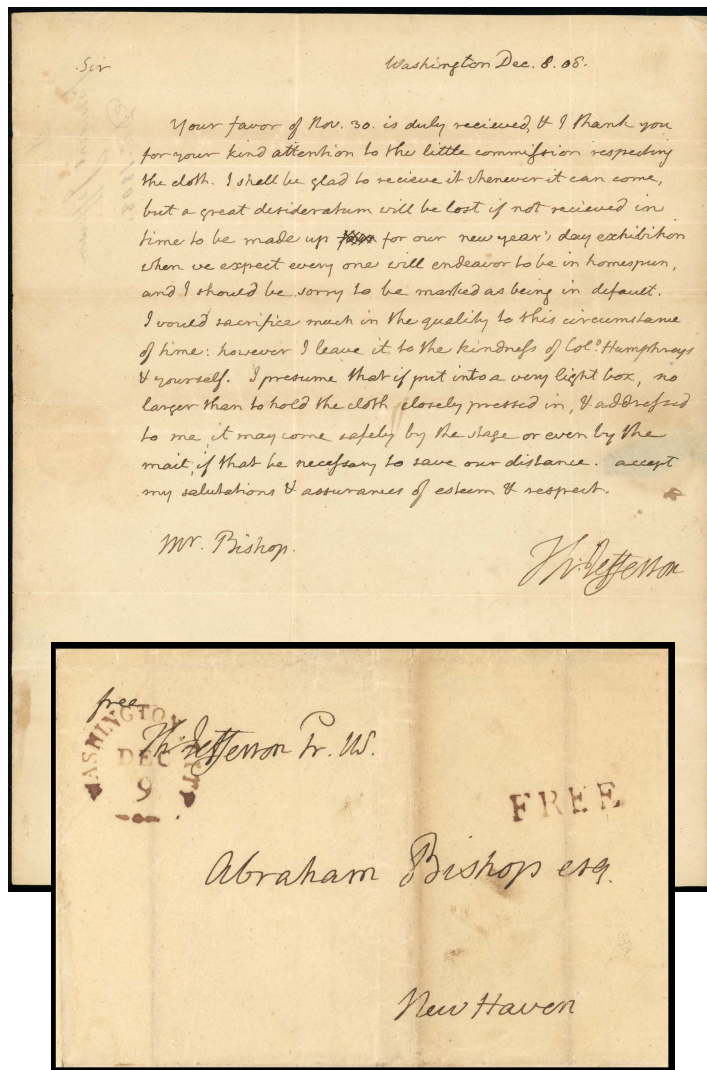 Sir
Washington Dec. 8. 08.
Your favor of Nov. 30. is duly recieved, & I thank you
for your kind attention to the little commission respecting
the cloth. I shall be glad to recieve it whenever it can come,
but a great desideratum will be lost if not recieved in
time to be made up for our new year's day exhibition
when we expect every one will endeavor to be in homespun,
and I should be sorry to be marked as being in default.
I would sacrifice much in the quality to this circumstance
of time: however I leave it to the kindness of Colo. Humphreys
& yourself. I presume that if put into a very light box, no
larger than to hold the cloth closely pressed in, & addressed
to me, it may come safely by the stage or even by the
mail, if that be necessary to save our distance. accept
my salutations & assurances of esteem & respect.
Mr. Bishop.
Th: Jefferson
free
Th: Jefferson Pr. US.
WASHINGTON CITY
DEC
9
FREE
Abraham Bishop esq.
New Haven